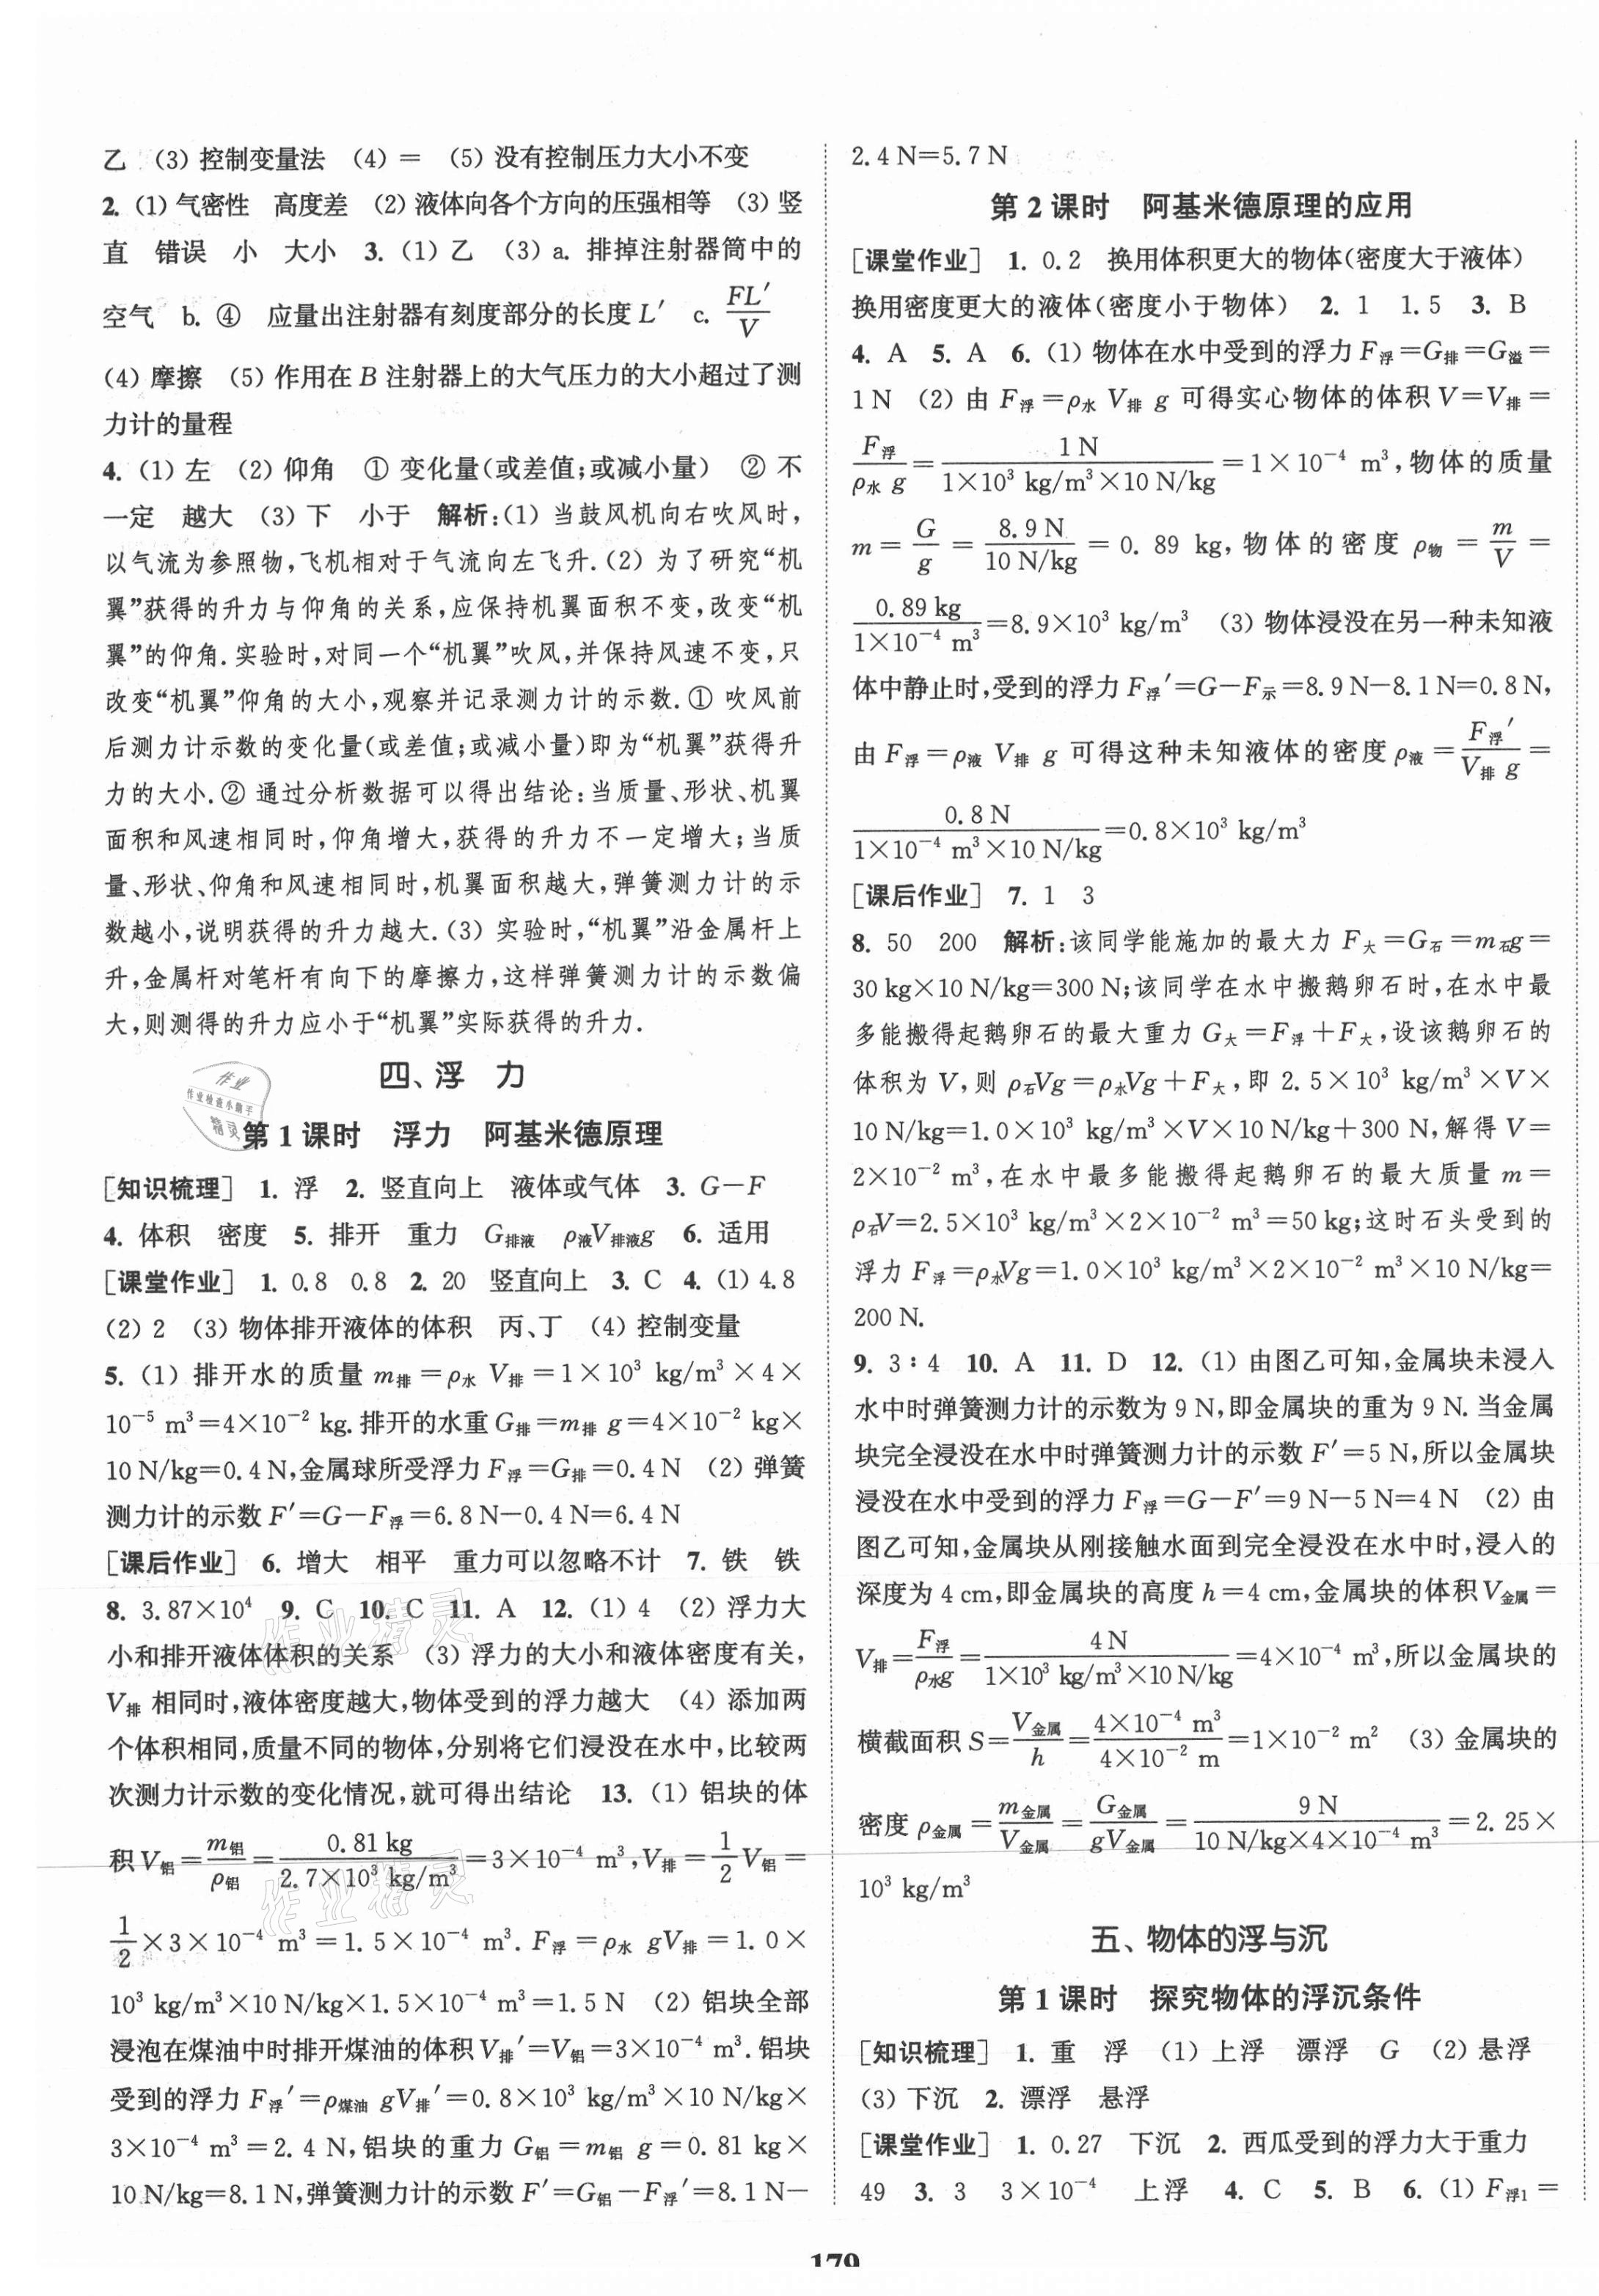 乙　(3) 控制变量法　(4) =　(5) 没有控制压力大小不变
2. (1) 气密性　高度差　(2) 液体向各个方向的压强相等　(3) 竖
直　错误　小　大小　3. (1) 乙　(3) a. 排掉注射器筒中的
空气　b. ④　应量出注射器有刻度部分的长度 L′　c. FL′/V
(4) 摩擦　(5) 作用在 B 注射器上的大气压力的大小超过了测
力计的量程
4. (1) 左　(2) 仰角　① 变化量(或差值;或减小量)　② 不
一定　越大　(3) 下　小于　解析:(1) 当鼓风机向右吹风时,
以气流为参照物,飞机相对于气流向左飞升.(2) 为了研究“机
翼”获得的升力与仰角的关系,应保持机翼面积不变,改变“机
翼”的仰角.实验时,对同一个“机翼”吹风,并保持风速不变,只
改变“机翼”仰角的大小,观察并记录测力计的示数.① 吹风前
后测力计示数的变化量(或差值;或减小量)即为“机翼”获得升
力的大小.② 通过分析数据可以得出结论:当质量、形状、机翼
面积和风速相同时,仰角增大,获得的升力不一定增大;当质
量、形状、仰角和风速相同时,机翼面积越大,弹簧测力计的示
数越小,说明获得的升力越大.(3) 实验时,“机翼”沿金属杆上
升,金属杆对笔杆有向下的摩擦力,这样弹簧测力计的示数偏
大,则测得的升力应小于“机翼”实际获得的升力.
四、浮　力
第 1 课时　浮力　阿基米德原理
[知识梳理]　1. 浮　2. 竖直向上　液体或气体　3. G−F
4. 体积　密度　5. 排开　重力　G排液　ρ液V排液g　6. 适用
[课堂作业]　1. 0.8　0.8　2. 20　竖直向上　3. C　4. (1) 4.8
(2) 2　(3) 物体排开液体的体积　丙、丁　(4) 控制变量
5. (1) 排开水的质量 m排=ρ水 V排=1×10³ kg/m³×4×
10⁻⁵ m³=4×10⁻² kg.排开的水重 G排=m排 g=4×10⁻² kg×
10 N/kg=0.4 N,金属球所受浮力 F浮=G排=0.4 N　(2) 弹簧
测力计的示数 F′=G−F浮=6.8 N−0.4 N=6.4 N
[课后作业]　6. 增大　相平　重力可以忽略不计　7. 铁　铁
8. 3.87×10⁴　9. C　10. C　11. A　12. (1) 4　(2) 浮力大
小和排开液体体积的关系　(3) 浮力的大小和液体密度有关,
V排 相同时,液体密度越大,物体受到的浮力越大　(4) 添加两
个体积相同,质量不同的物体,分别将它们浸没在水中,比较两
次测力计示数的变化情况,就可得出结论　13. (1) 铝块的体
积 V铝=m铝/ρ铝=0.81 kg/(2.7×10³ kg/m³)=3×10⁻⁴ m³,V排=1/2 V铝=
1/2×3×10⁻⁴ m³=1.5×10⁻⁴ m³.F浮=ρ水 gV排=1.0×
10³ kg/m³×10 N/kg×1.5×10⁻⁴ m³=1.5 N　(2) 铝块全部
浸泡在煤油中时排开煤油的体积 V排′=V铝=3×10⁻⁴ m³.铝块
受到的浮力 F浮′=ρ煤油 gV排′=0.8×10³ kg/m³×10 N/kg×
3×10⁻⁴ m³=2.4 N,铝块的重力 G铝=m铝 g=0.81 kg×
10 N/kg=8.1 N,弹簧测力计的示数 F′=G铝−F浮′=8.1 N−
2.4 N=5.7 N
第 2 课时　阿基米德原理的应用
[课堂作业]　1. 0.2　换用体积更大的物体(密度大于液体)
换用密度更大的液体(密度小于物体)　2. 1　1.5　3. B
4. A　5. A　6. (1) 物体在水中受到的浮力 F浮=G排=G溢=
1 N　(2) 由 F浮=ρ水 V排 g 可得实心物体的体积 V=V排=
F浮/(ρ水 g)=1 N/(1×10³ kg/m³×10 N/kg)=1×10⁻⁴ m³,物体的质量
m=G/g=8.9 N/(10 N/kg)=0.89 kg,物体的密度 ρ物=m/V=
0.89 kg/(1×10⁻⁴ m³)=8.9×10³ kg/m³　(3) 物体浸没在另一种未知液
体中静止时,受到的浮力 F浮′=G−F示=8.9 N−8.1 N=0.8 N,
由 F浮=ρ液 V排 g 可得这种未知液体的密度 ρ液=F浮′/(V排 g)=
0.8 N/(1×10⁻⁴ m³×10 N/kg)=0.8×10³ kg/m³
[课后作业]　7. 1　3
8. 50　200　解析:该同学能施加的最大力 F大=G石=m石g=
30 kg×10 N/kg=300 N;该同学在水中搬鹅卵石时,在水中最
多能搬得起鹅卵石的最大重力 G大=F浮+F大,设该鹅卵石的
体积为 V,则 ρ石Vg=ρ水Vg+F大,即 2.5×10³ kg/m³×V×
10 N/kg=1.0×10³ kg/m³×V×10 N/kg+300 N,解得 V=
2×10⁻² m³,在水中最多能搬得起鹅卵石的最大质量 m=
ρ石V=2.5×10³ kg/m³×2×10⁻² m³=50 kg;这时石头受到的
浮力 F浮=ρ水Vg=1.0×10³ kg/m³×2×10⁻² m³×10 N/kg=
200 N.
9. 3∶4　10. A　11. D　12. (1) 由图乙可知,金属块未浸入
水中时弹簧测力计的示数为 9 N,即金属块的重为 9 N.当金属
块完全浸没在水中时弹簧测力计的示数 F′=5 N,所以金属块
浸没在水中受到的浮力 F浮=G−F′=9 N−5 N=4 N　(2) 由
图乙可知,金属块从刚接触水面到完全浸没在水中时,浸入的
深度为 4 cm,即金属块的高度 h=4 cm,金属块的体积 V金属=
V排=F浮/(ρ水g)=4 N/(1×10³ kg/m³×10 N/kg)=4×10⁻⁴ m³,所以金属块的
横截面积 S=V金属/h=(4×10⁻⁴ m³)/(4×10⁻² m)=1×10⁻² m²　(3) 金属块的
密度 ρ金属=m金属/V金属=G金属/(gV金属)=9 N/(10 N/kg×4×10⁻⁴ m³)=2.25×
10³ kg/m³
五、物体的浮与沉
第 1 课时　探究物体的浮沉条件
[知识梳理]　1. 重　浮　(1) 上浮　漂浮　G　(2) 悬浮
(3) 下沉　2. 漂浮　悬浮
[课堂作业]　1. 0.27　下沉　2. 西瓜受到的浮力大于重力
49　3. 3　3×10⁻⁴　上浮　4. C　5. B　6. (1) F浮1=
179
作业
作业检查小助手
精灵
作业精灵
作业精灵